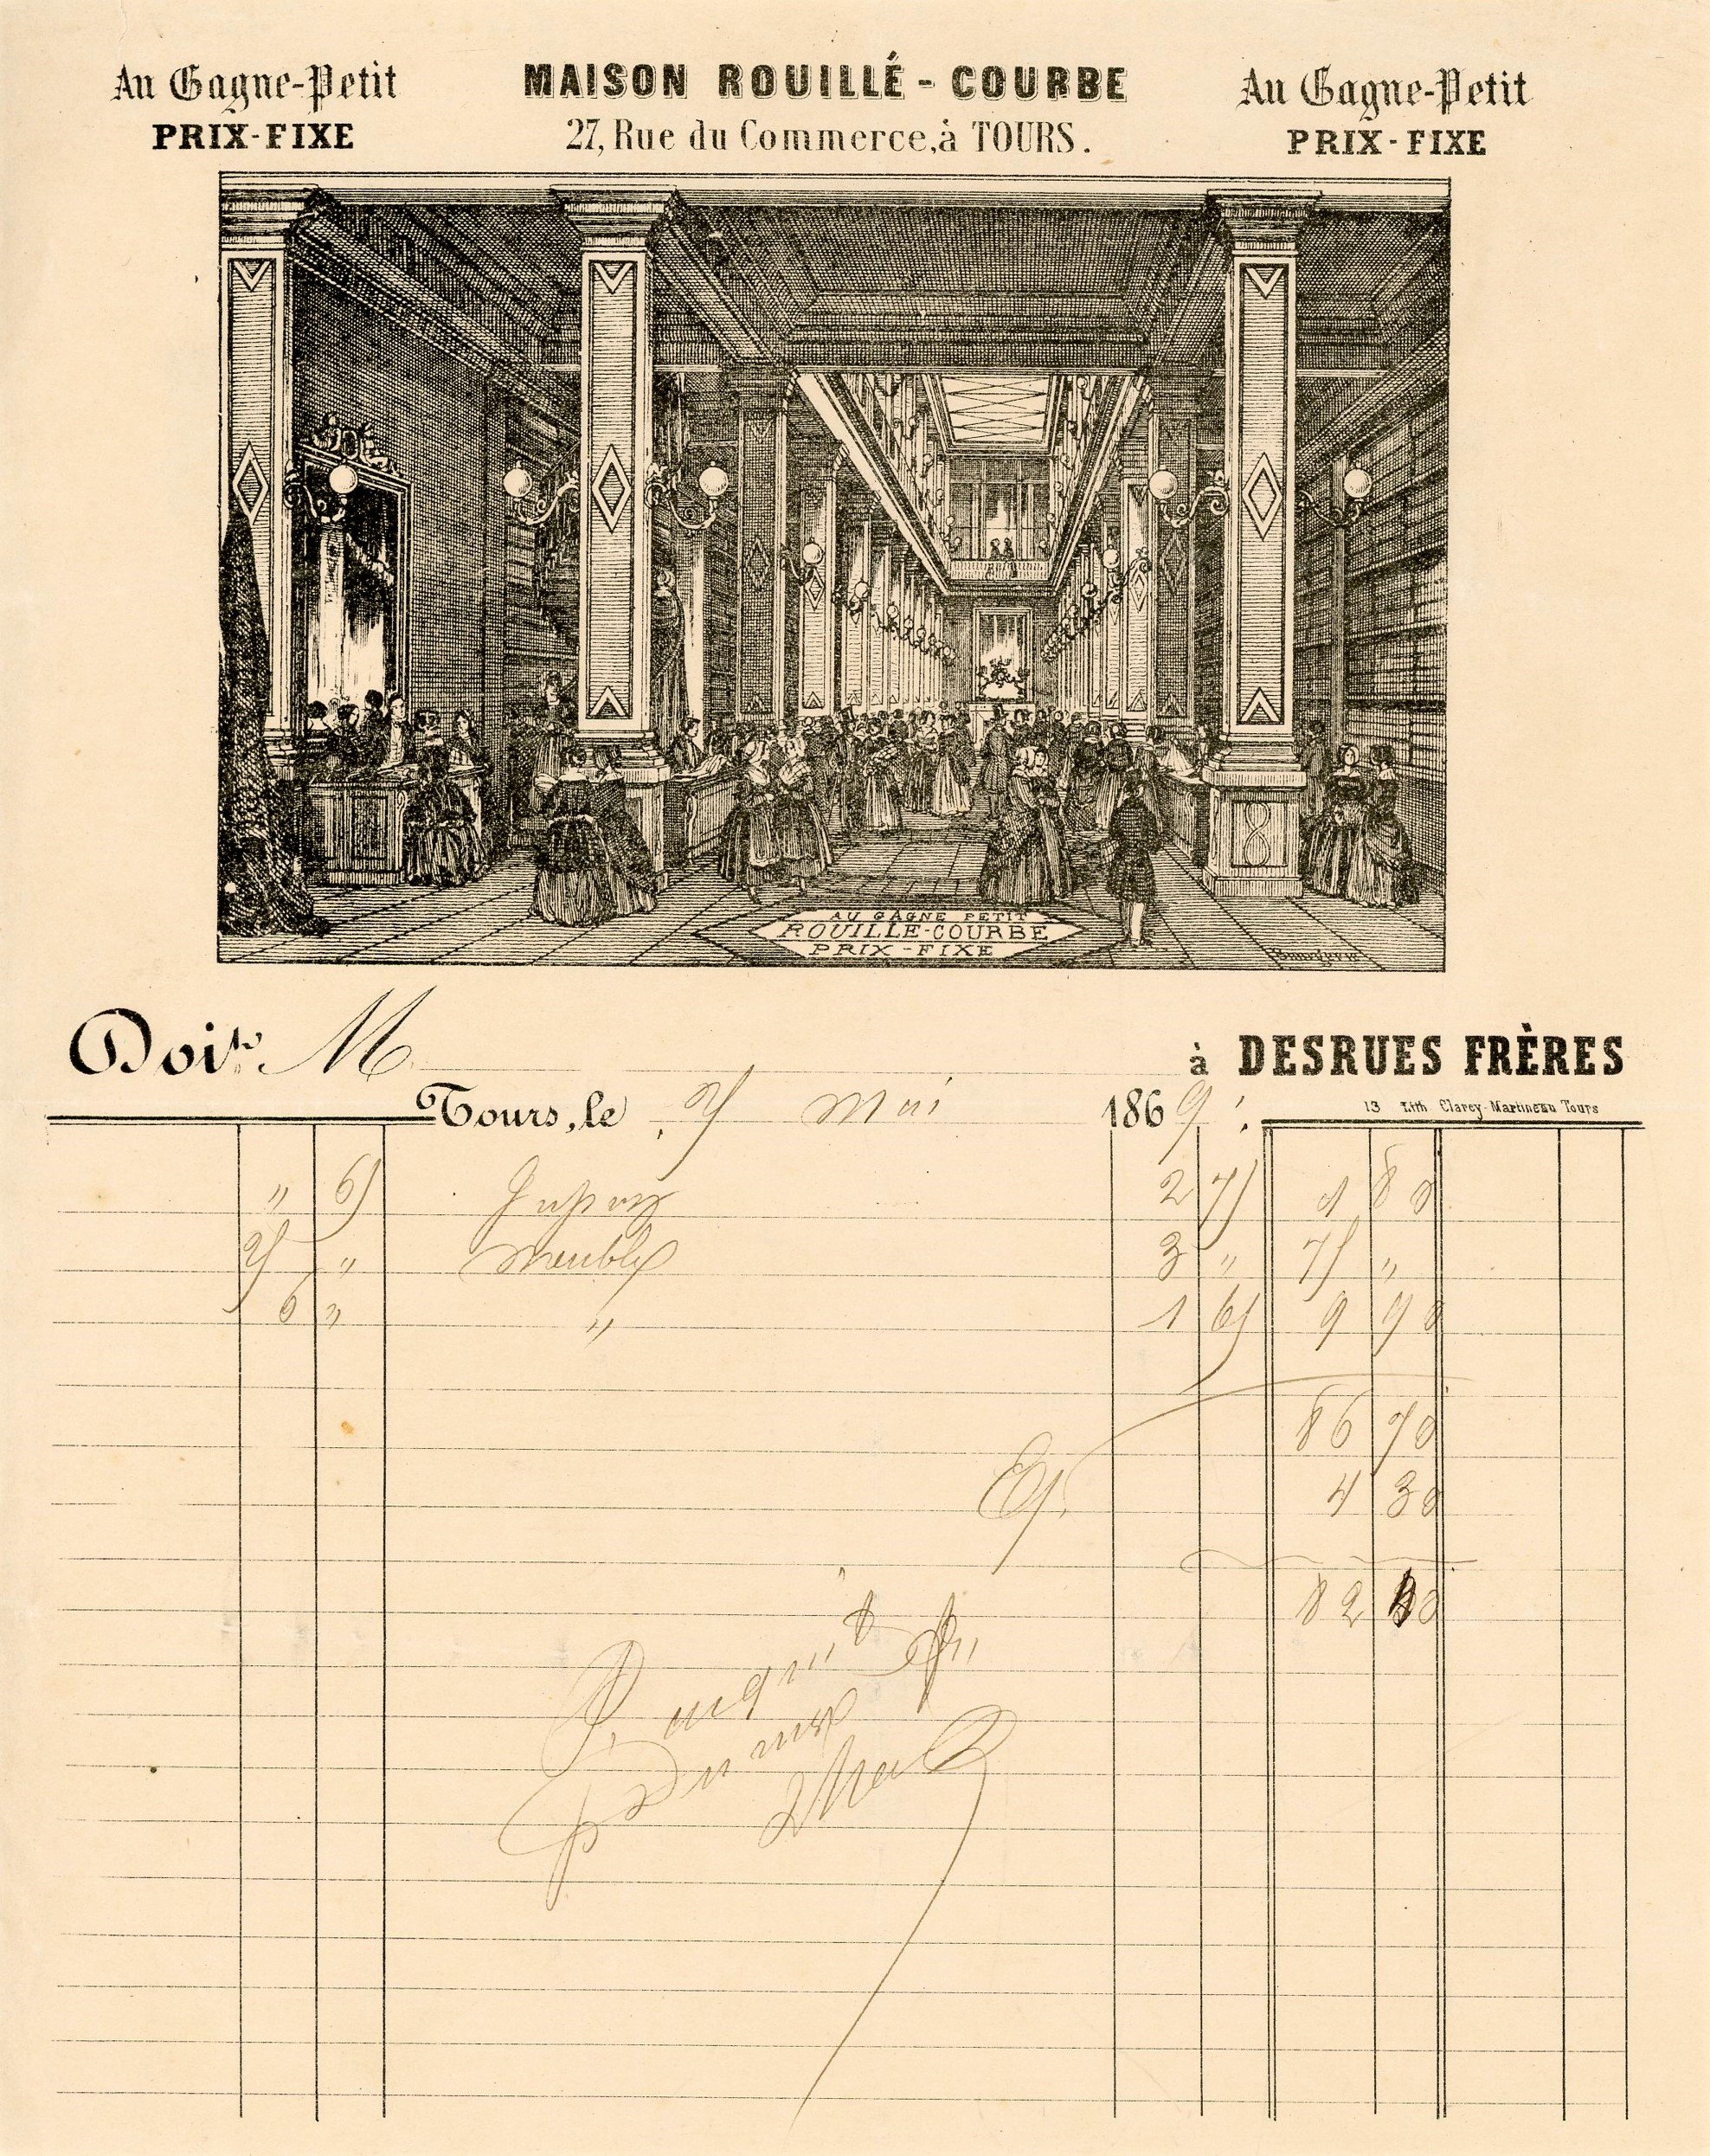 Au Gagne-Petit
PRIX-FIXE
MAISON ROUILLÉ-COURBE
27, Rue du Commerce, à TOURS.
Au Gagne-Petit
PRIX-FIXE
AU GAGNE PETIT
ROUILLE-COURBE
PRIX-FIXE
Doit M à DESRUES FRÈRES
Tours, le Mai 1869
13 Lith Clarey-Martineau Tours
" 65 Jupon 2 75 1 80
25 " Meuble 3 " 75 "
6 " " 1 65 9 90
86 70
4 30
82 40